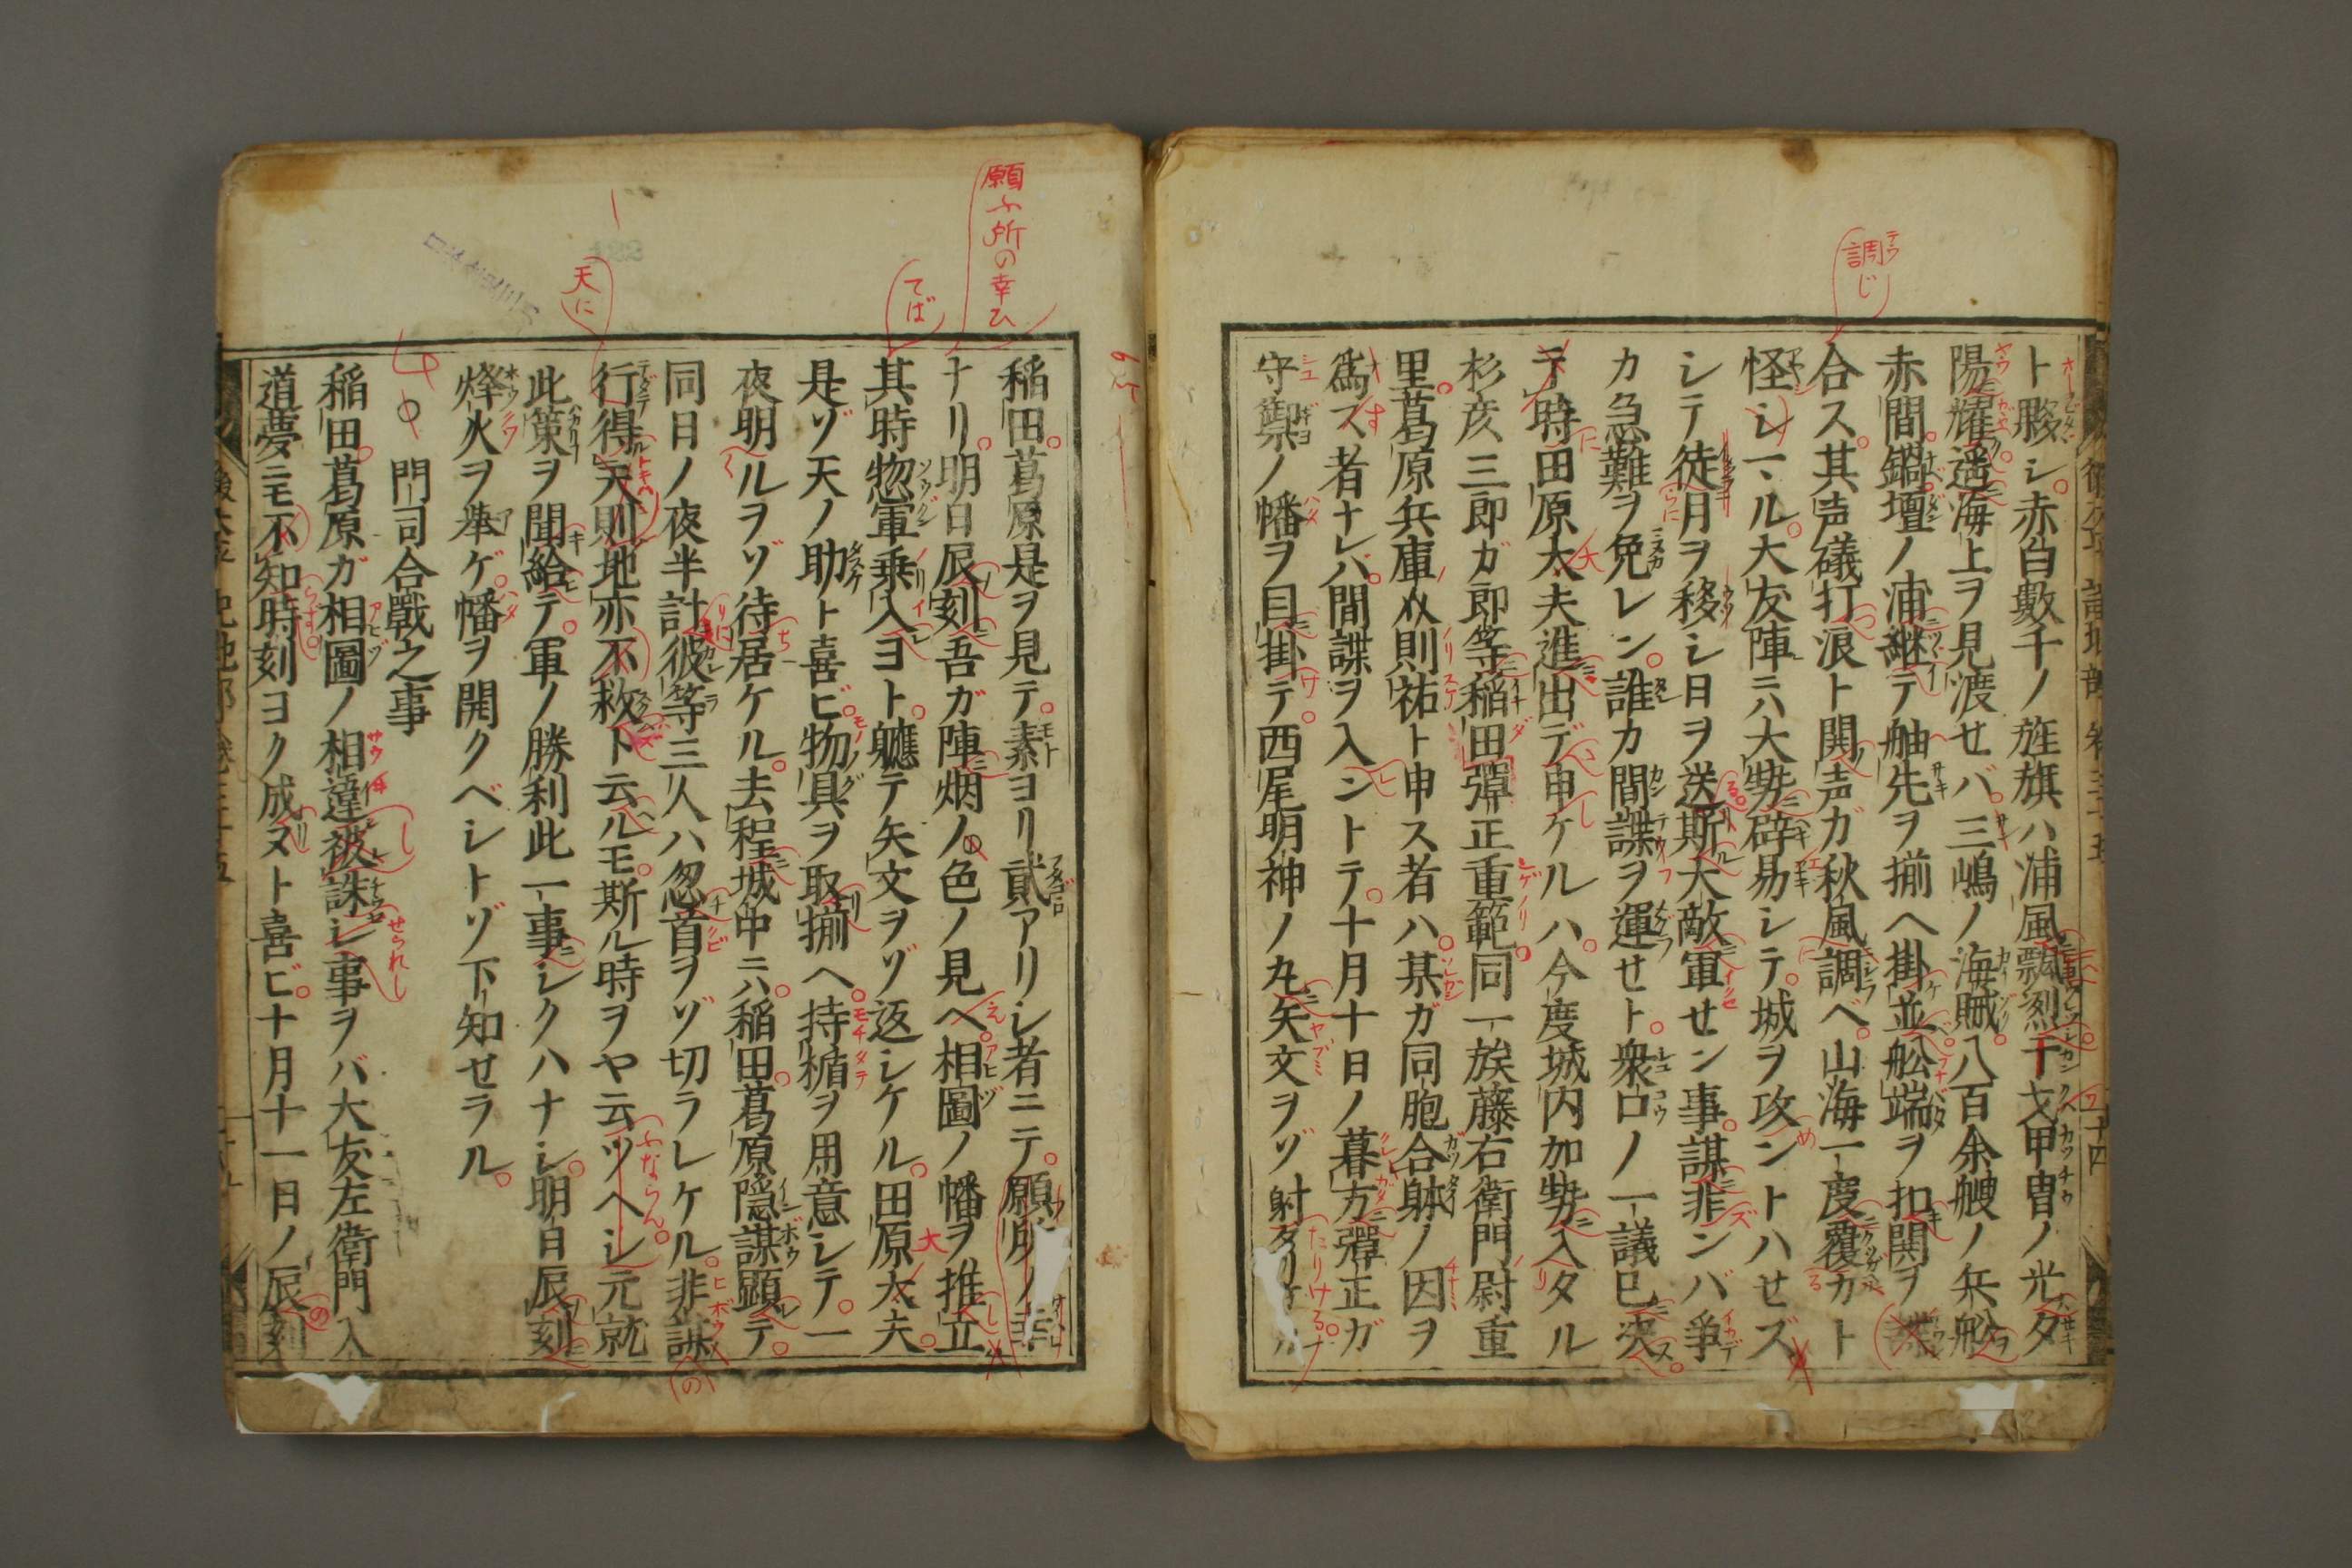 ト彂シ赤白數千ノ旌旗ハ浦風飄烈干戈甲冑ノ光夕
陽耀遥海上ヲ見渡セバ三嶋ノ海賊八百余艘ノ兵舩
赤間鍋壇ノ浦継テ舳先ヲ揃ヘ掛並舩端ヲ扣関ヲ
合ス其声礒打浪ト関声ガ秋風調ベ山海一度覆カト
怪シヽル大友陣ニハ大勢辟易シテ城ヲ攻ントハセズ
シテ徒月ヲ移シ日ヲ送斯大敵軍セン事謀非ンバ爭
カ急難ヲ免レン誰カ間諜ヲ運セト衆口ノ一議已决
于時田原太夫進出デ申ケルハ今度城内加勢入タル
杉彦三郎ガ郎等稲田彈正重範同一族藤右衛門尉重
里葛原兵庫助則祐ト申ス者ハ某ガ同胞合躰ノ因ヲ
爲ス者ナレバ間諜ヲ入ントテ十月十日ノ暮方彈正ガ
守禦ノ幡ヲ目掛テ西尾明神ノ丸矢文ヲゾ射タリケル
調じ
稲田葛原是ヲ見テ素ヨリ貳アリシ者ニテ願所ノ幸
ナリ明日辰刻吾ガ陣烟ノ色ノ見ヘ相圖ノ幡ヲ推立
其時惣軍乗入ヨト軈テ矢文ヲゾ返シケル田原太夫
是ゾ天ノ助ト喜ビ物具ヲ取揃ヘ持楯ヲ用意シテ一
夜明ルヲゾ待居ケル去程城中ニハ稲田葛原隠謀顕テ
同日ノ夜半計彼等三人ハ忽首ヲゾ切ラレケル非謀
行得天則地亦不救ト云ルモ斯ル時ヲヤ云ツヘシ元就
此策ヲ聞給テ軍ノ勝利此一事シクハナシ明日辰刻
烽火ヲ挙ゲ幡ヲ開クベシトゾ下知セラル
門司合戰之事
稲田葛原ガ相圖ノ相違被誅シ事ヲバ大友左衛門入
道夢ニモ不知時刻ヨク成ヌト喜ビ十月十一日ノ辰刻
願ふ所の幸ひ
てば
天に